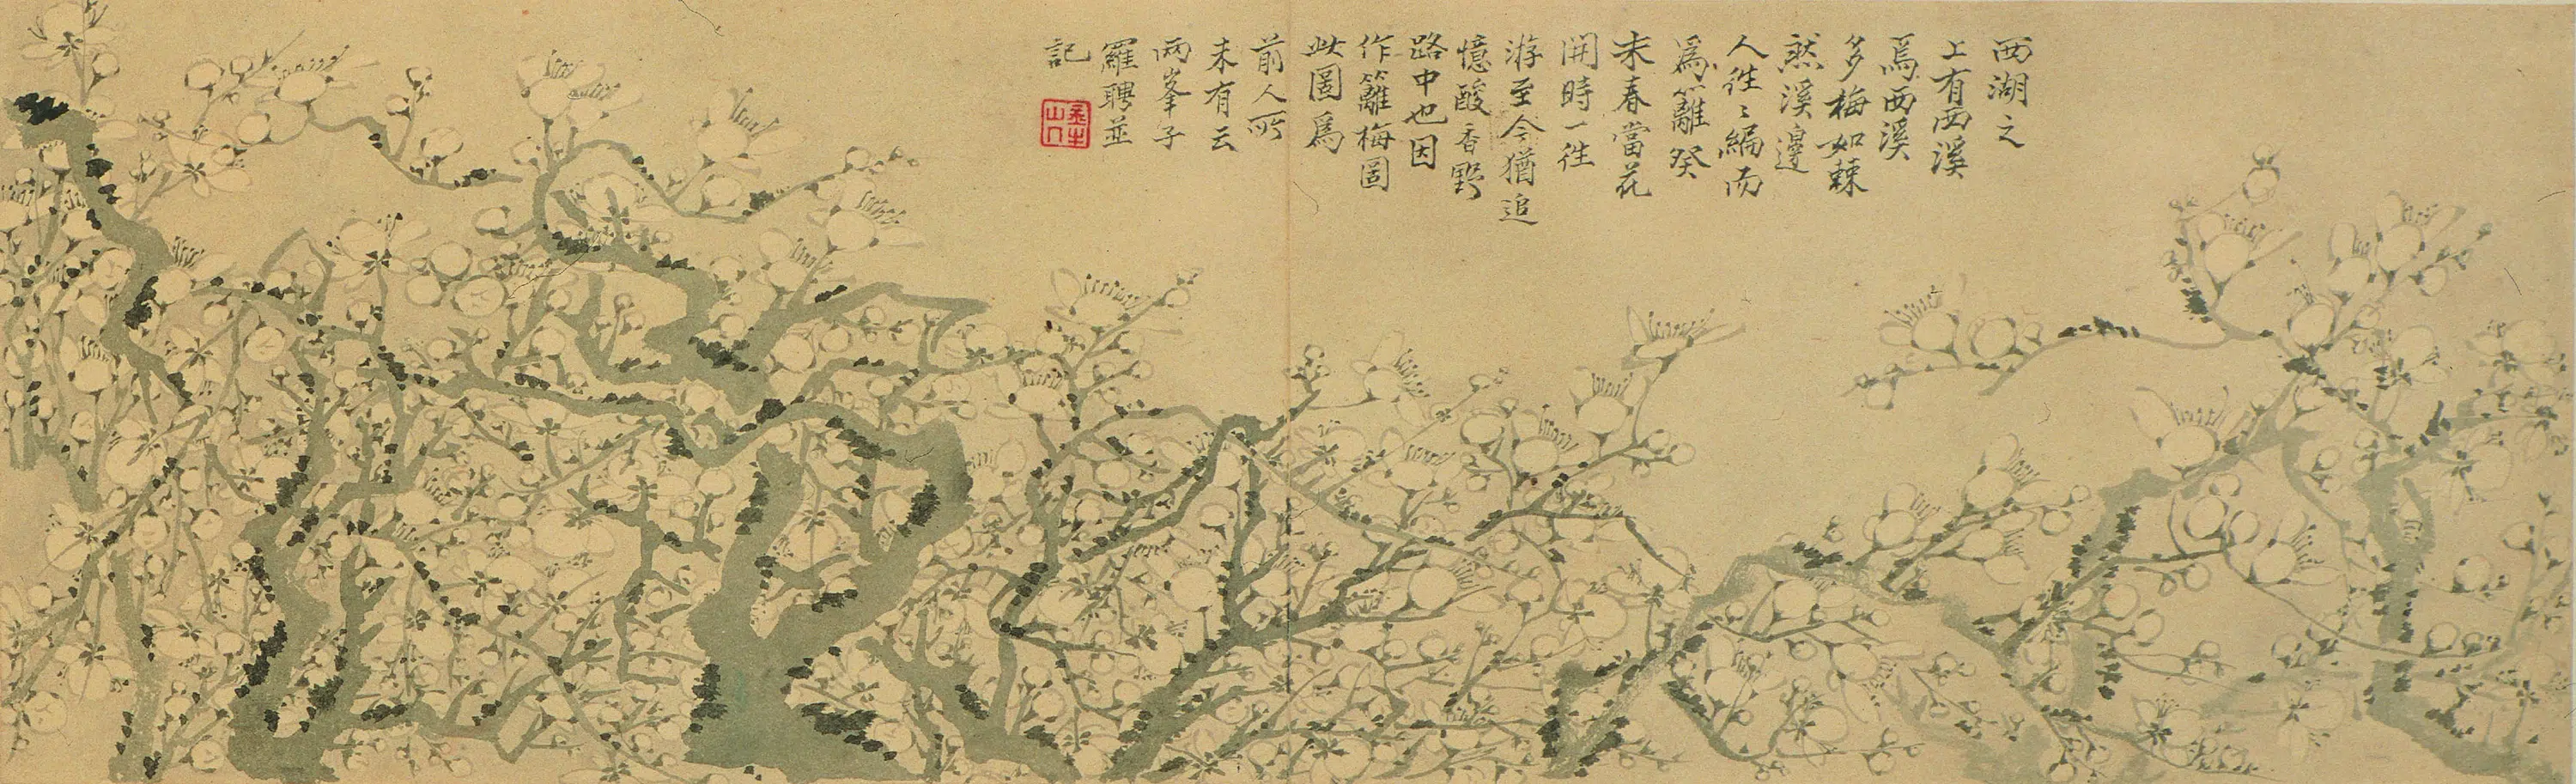 西湖之
上有西溪
焉西溪
多梅如棘
然溪邊
人徃〻編而
為籬癸
未春當花
開時一徃
游至今猶追
憶酸香野
路中也因
作籬梅圖
此圖為
前人所
未有云
兩峯子
羅聘並
記